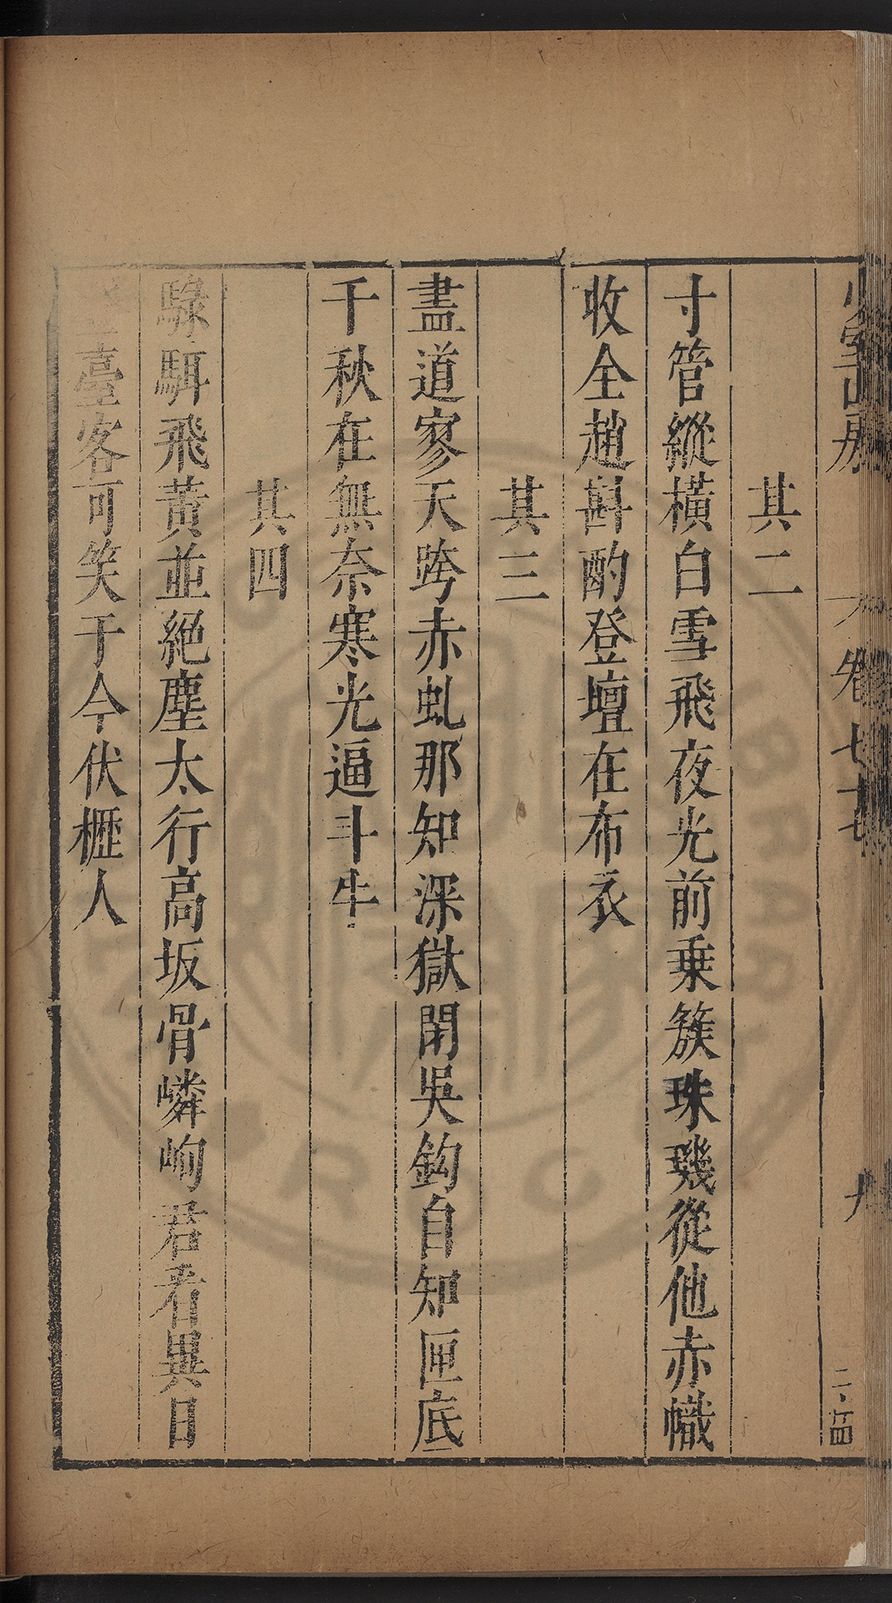 卷七十七
九
其二
寸管縱橫白雪飛夜光前乗簇珠璣從他赤幟
收全趙斟酌登壇在布衣
其三
盡道寥天跨赤虬那知深獄閉吳鈎自知匣底
千秋在無奈寒光逼斗牛
其四
騄駬飛黃並絕塵太行高坂骨嶙峋君看異日
臺客可笑于今伏櫪人